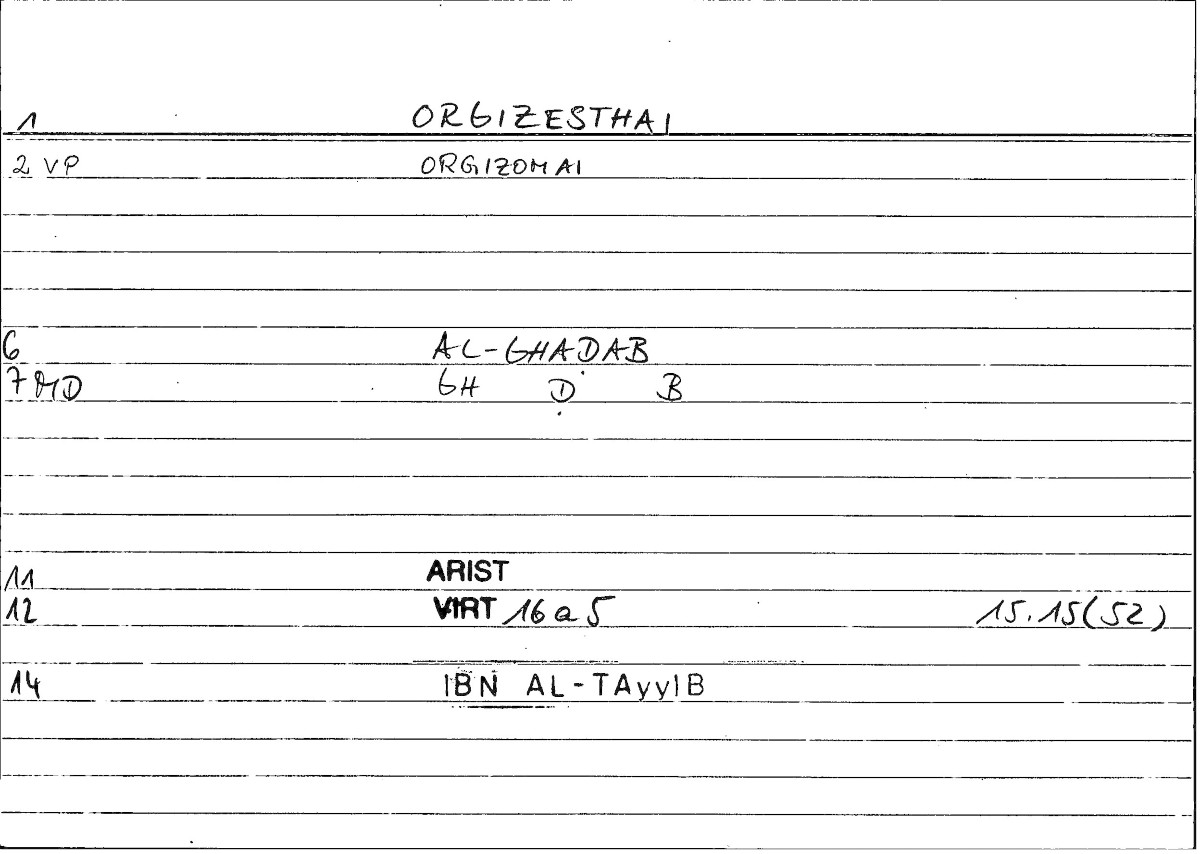 1 ORGIZESTHAI
2 VP ORGIZOMAI
6 AL-GHADAB
7 MD GH Ḍ B
11 ARIST
12 VIRT 16 a 5 15.15(52)
14 IBN AL-TAyyIB